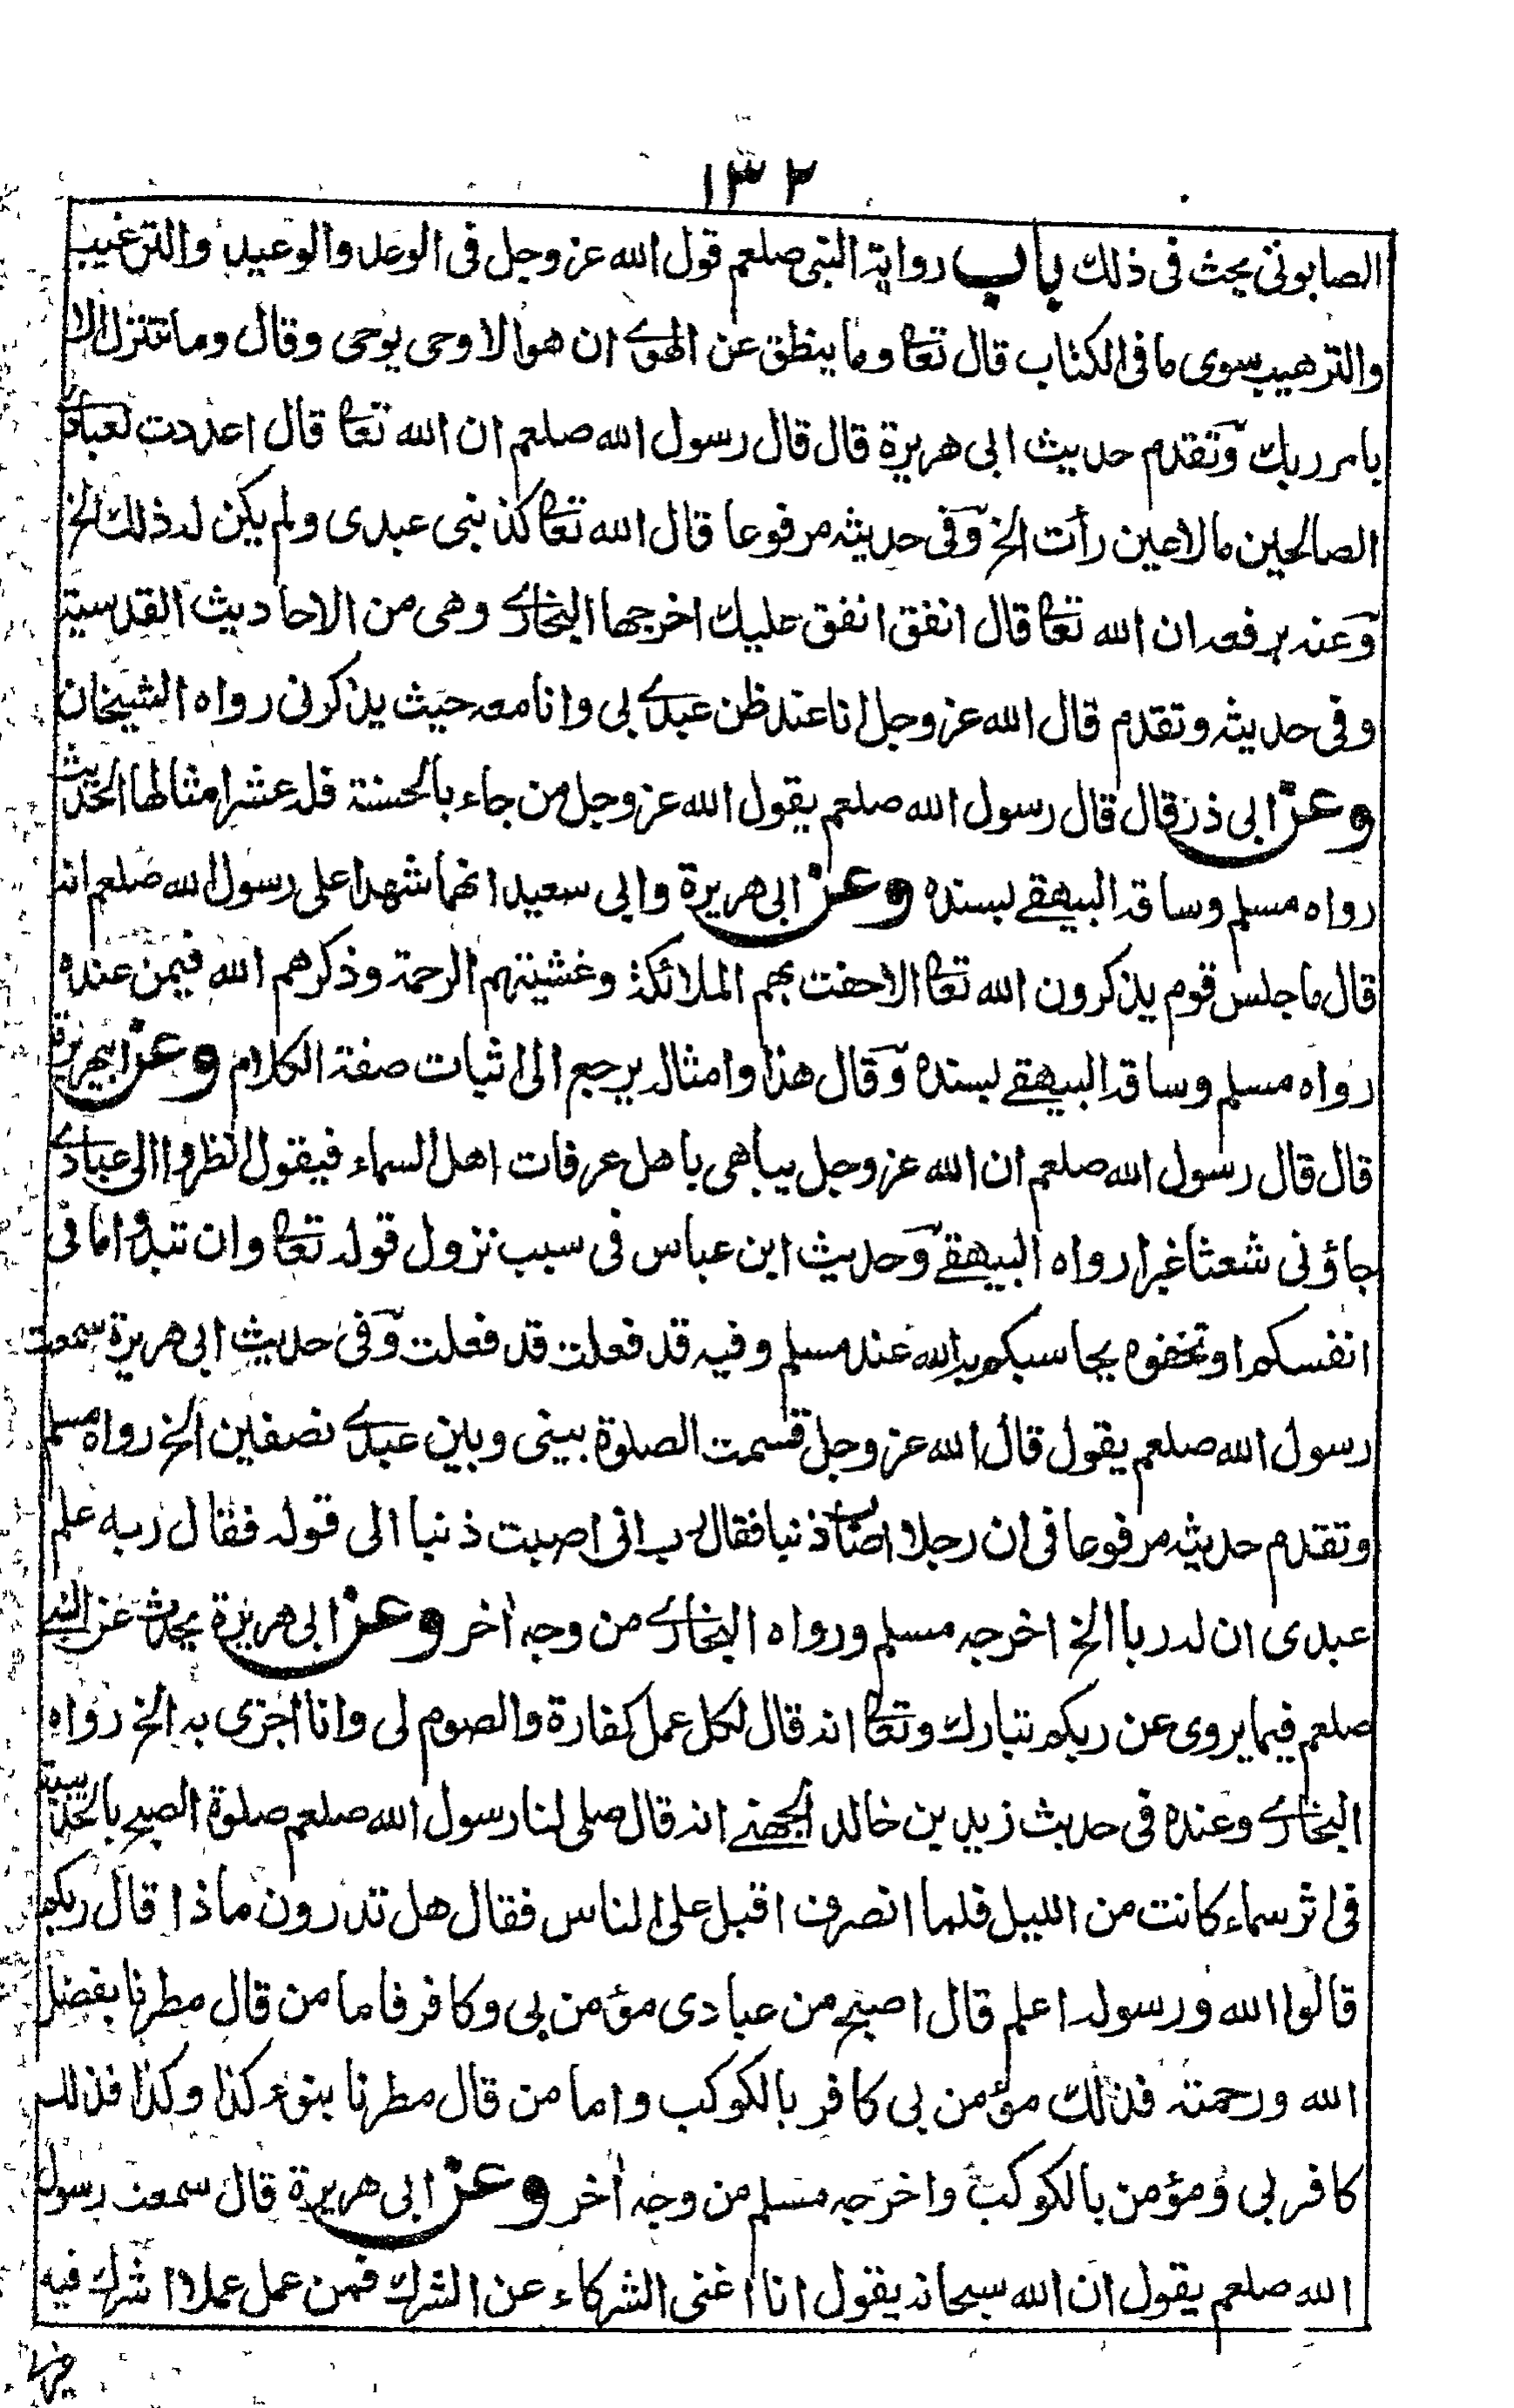 ١٣٢
الصابونی بحث فی ذلك باب روایة النبی صلعم قول الله عز وجل فی الوعد والوعید والترغیب
والترهیب سوی ما فی الکتاب قال تعا وما ینطق عن الهوے ان هو الا وحی یوحی وقال وما نتنزل الا
بامر ربك وتقدم حدیث ابی هریرة قال قال رسول الله صلعم ان الله تعا قال اعددت لعبادے
الصالحین ما لا عین رأت الخ وفی حدیثه مرفوعا قال الله تعا کذبنی عبدی ولم یکن له ذلك الخ
وعنه یرفعه ان الله تعا قال انفق انفق علیك اخرجها البخارے وهی من الاحادیث القدسیة
وفی حدیثه وتقدم قال الله عز وجل انا عند ظن عبدے بی وانا معه حیث یذکرنی رواه الشیخان
وعن ابی ذر قال قال رسول الله صلعم یقول الله عز وجل من جاء بالحسنة فله عشر امثالها الحدیث
رواه مسلم وساقه البیهقے بسنده وعن ابی هریرة وابی سعید انهما شهدا علی رسول الله صلعم انه
قال ما جلس قوم یذکرون الله تعا الا حفت بهم الملائکة وغشیتهم الرحمة وذکرهم الله فیمن عنده
رواه مسلم وساقه البیهقے بسنده وقال هذا وامثاله یرجع الی اثبات صفة الکلام وعن ابیهریرة
قال قال رسول الله صلعم ان الله عز وجل یباهی باهل عرفات اهل السماء فیقول انظروا الی عبادے
جاؤنی شعثا غبرا رواه البیهقے وحدیث ابن عباس فی سبب نزول قوله تعا وان تبدوا ما فی
انفسکم او تخفوه یحاسبکم به الله عند مسلم وفیه قد فعلت قد فعلت وفی حدیث ابی هریرة سمعت
رسول الله صلعم یقول قال الله عز وجل قسمت الصلوة بینی وبین عبدے نصفین الخ رواه مسلم
وتقدم حدیثه مرفوعا فی ان رجلا اصاب ذنبا فقال رب انی اصبت ذنبا الی قوله فقال ربه علم
عبدی ان له ربا الخ اخرجه مسلم ورواه البخارے من وجه اٰخر وعن ابی هریرة یحدث عن النبی
صلعم فیما یروی عن ربکم تبارك وتعا انه قال لکل عمل کفارة والصوم لی وانا اجزی به الخ رواه
البخارے وعنده فی حدیث زید بن خالد الجهنے انه قال صلی لنا رسول الله صلعم صلوة الصبح بالحدیبیة
فی اثر سماء کانت من اللیل فلما انصرف اقبل علی الناس فقال هل تدرون ماذا قال ربکم
قالوا الله ورسوله اعلم قال اصبح من عبادی مؤمن بی وکافر فاما من قال مطرنا بفضل
الله ورحمته فذلك مؤمن بی کافر بالکوکب واما من قال مطرنا بنوء کذا وکذا فذلك
کافر بی ومؤمن بالکوکب واخرجه مسلم من وجه اٰخر وعن ابی هریرة قال سمعت رسول
الله صلعم یقول ان الله سبحانه یقول انا اغنی الشرکاء عن الشرك فمن عمل عملا اشرك فیه